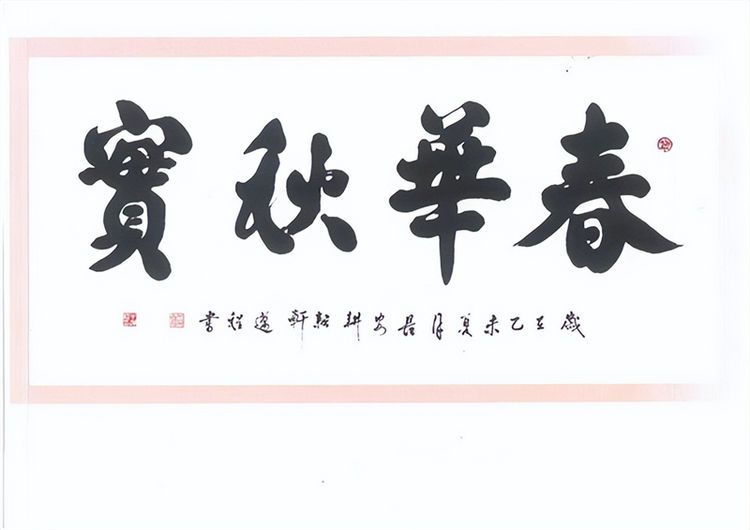 春華秋實
歲在乙未夏月長安耕耘軒遠程書